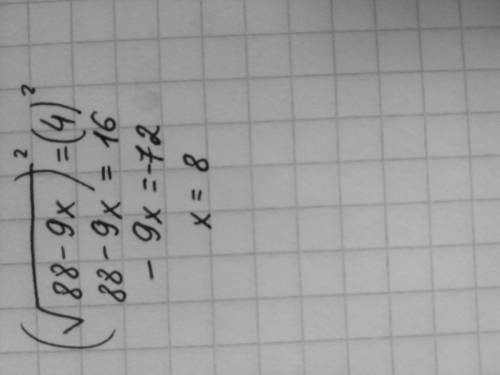 (√88-9x)² = (4)²
88-9x = 16
-9x = -72
x = 8